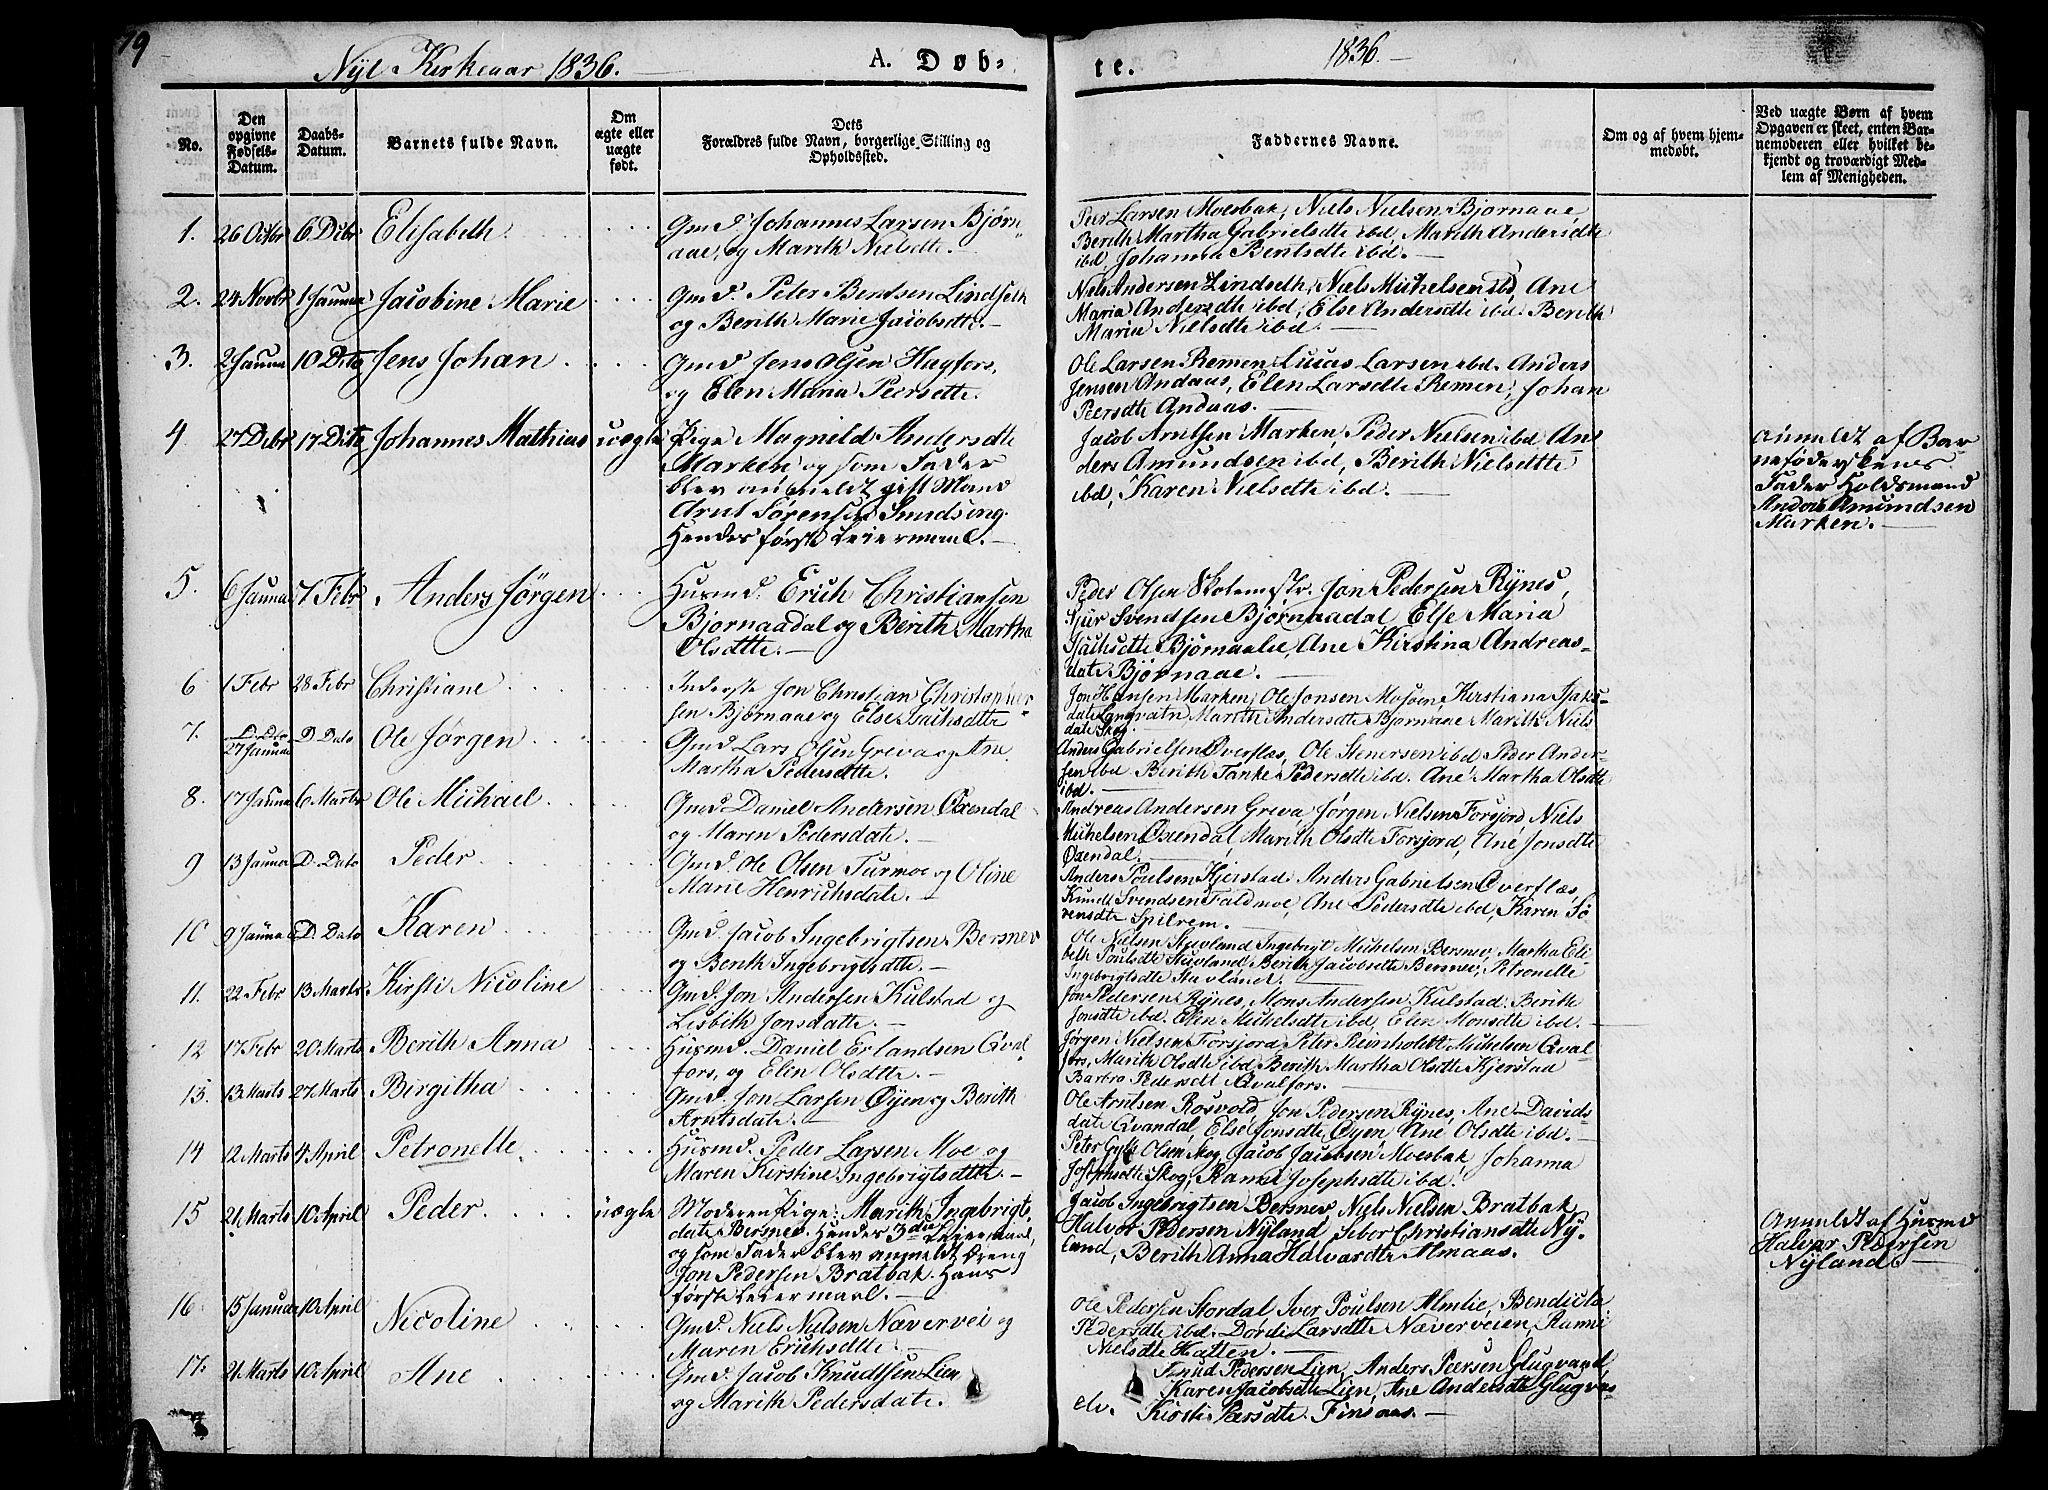 79
Nyt Kirkeaar 1836.
A. Døb-
te.
1836.
No.
Den opgivne Fødsels-Datum.
Daabs-Datum.
Barnets fulde Navn.
Om ægte eller uægte født.
Dets Forældres fulde Navn, borgerlige Stilling og Opholdssted.
Faddernes Navne.
Om og af hvem hjem-medøbt.
Ved uægte Børn af hvem Opgaven er skeet, enten Bar-nemoderen eller hvilket be-kjendt og troværdigt Med-lem af Menigheden.
1. 26 Octbr 6 Dcbr Elisabeth
Gmd. Johannes Larsen Bjørn-
aae, og Marith Nielsdte.
Peer Larsen Moesbak, Niels Nielsen Bjornaae,
Berith Martha Gabrielsdte ibd, Marith Andersdte
ibd, Johanna Bentsdte ibd.
2. 24 Novbr 1 Janua Jacobine Marie
Gmd. Peter Bentsen Lindseth
og Berith Marie Jacobsdte.
Niels Andersen Lindseth, Niels Michelsen ibd, Ane
Maria Andersdte ibd, Else Andersdte ibd. Berith
Maria Nielsdte ibd.
3. 2 Janua 10 Dito Jens Johan
Gmd. Jens Olsen Hagfors,
og Elen Maria Peersdte.
Ole Larsen Remen, Lucas Larsen ibd. Anders
Jensen Andaas, Elen Larsdte Remen, Johan
Peersdte Andaas.
4 27 Dcbr 17 Dito Johannes Mathias uægte
Pige Magnild Andersdte
Marken og som Fader
blev anmeldt gift Mand
Arnt Sørensen Smedseng.
Hendes første Leiermaal.
Jacob Arntsen Marken, Peder Nielsen ibd An-
ders Amundsen ibd, Berith Nielsdtte
ibd, Karen Nielsdtte ibd.
Anmeldt af Bar-
neføderskens
Fader Holdsmand
Anders Amundsen
Marken.
5. 6 Janua 7 Febr Anders Jørgen
Husmd. Erich Christiansen
Bjornaadal og Berith Martha
Olsdtte.
Peder Olsen Skolemstr. Jon Pedersen Rynes,
Sjur Svendsen Bjørnaadal, Else Maria
Bjørnaalie, Ane Kirstina Andreas-
date Bjørnaae.
6 1 Febr 28 Febr Christiane
Inderste Jon Christian Christopher-
sen Bjørnaae og Else
Jon Hansen Marken, Ole Jonsen Kirstiana Isaks-
date Langvatn Marith Andersdte Bjørnaae Marith Niels
date Skog.
7. 27 Janua D. Dato Ole Jørgen
Gmd. Lars Olsen Greva og Ane
Martha Pedersdtte.
Anders Gabrielsen Øverflæs, Ole Stenersen ibd Peder Ander-
sen ibd Berith Tanke Pedersdte ibd. Ane Martha Olsdte
ibd.
8. 17 Janua 6 Marts Ole Michael
Gmd. Daniel Andersen Øxendal
og Maren Pedersdate.
Andreas Andersen Greva, Jørgen Nielsen Forsjord Niels
Michelsen Øxendal, Marith Olsdte Forsjord, Ane Jonsdte
Øxendal.
9 13 Janua D. Dato Peder
Gmd. Ole Olsen Turmoe og Oline
Marie Henrichsdate.
Anders Poulsen Kjerstad. Anders Gabrielsen Øverflæs,
Knudt Svendsen Faldmoe, Ane Pedersdte ibd, Karen Sø
rensdte Spilrem.
10 9 Janua D. Dato Karen
Gmd. Jacob Ingebrigtsen Bersnev
og Berith Ingebrigtsdtte.
Ole Nielsen Stuvland Ingebrigt Michelsen Bersnev, Martha Eli-
beth Poulsdte Stuvland, Berith Jacobsdte Bersnev, Petronelle
Ingebrigtsdte Stuvland.
11. 22 Febr 13 Marts Kirsti Nicoline
Gmd. Jon Andersen Kulstad og
Lisbith Jonsdatte.
Jon Pedersen Rynes, Mons Andersen Kulstad. Berith
Jonsdte ibd. Elen Michelsdte ibd, Elen Monsdte ibd.
12 17 Febr 20 Marts Berith Anna
Husmd. Daniel Erlandsen Qval-
fors, og Elen Olsdtte.
Jørgen Nielsen Forsjord Peter Reinholdt Michelsen Qval-
fors, Marith Olsdte ibd, Berith Martha Olsdte Kjerstad
Barbro Pedersdt Qvalfors.
13. 13 Marts 27 Marts Birgitha
Gmd. Jon Larsen Øyen og Berith
Arntsdate.
Ole Arntsen Rosvold, Jon Pedersen Rynes, Ane Davids-
date Qvandal, Else Jonsdte Øyen, Ane Olsdte ibd.
14 12 Marts 4 April Petronelle
Husmd. Peder Larsen Moe og
Maren Kirstine Ingebrigtsdtte.
Peter Olsen Skog, Jacob Jacobsen Moesbak, Johanna
Josephsdte Skog, Ranni Josephsdte ibd.
15 21 Marts 10 April Peder uægte
Moderen Pige: Marith Ingebrigts-
date Bersnev. Hendes 3die Leiermaal,
og som Fader blev anmeldt Dreng
Jon Pedersen Bratbak. Hans
første Leiermaal.
Jacob Ingebrigtsen Bersnev Niels Nielsen Bratbak
Halvor Pedersen Nyland, Seboe Christiansdte Ny-
land, Berith Anna Halvardte Almaas.
Anmeldt af Husmd
Halvor Pedersen
Nyland
16 15 Januar 10 April Nicoline
Gmd. Niels Nielsen Nævervei og
Maren Erichsdtte.
Ole Pedersen Stordal Iver Poulsen Almlie, Bendicta
Pedersdte ibd. Dordi Larsdtte Næverveien, Ranni
Nielsdte Hatten.
17. 21 Marts 10 April Ane
Gmd. Jacob Knudtsen Lien
og Marith Pedersdate.
Knud Pedersen Lien, Anders Peersen Glugvand,
Karen Jacobsdte Lien, Ane Andersdte Glugvas-
elv. Kirsti Larsdte Finsaas.